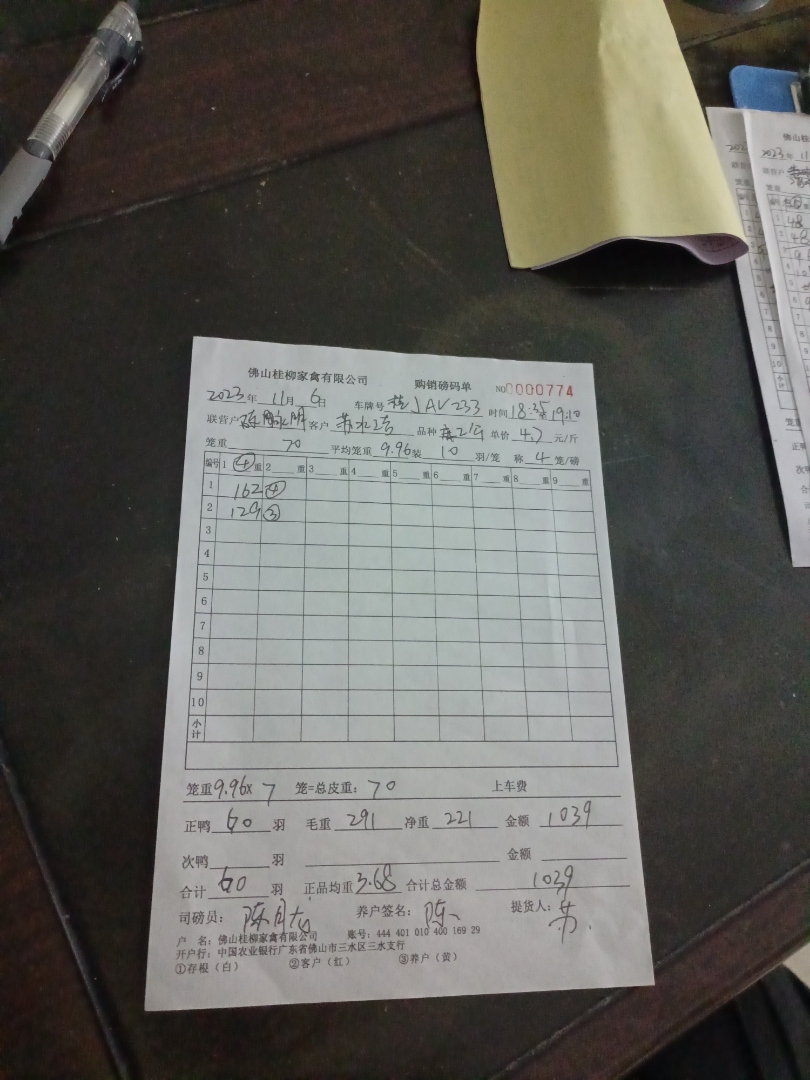 佛山桂柳家禽有限公司 购销磅码单 NO 0000774
2023年 11月 6日 车牌号 桂JAV233 时间 18:35至19:10
联营户 客户 品种 单价 4.7 元/斤
笼重 70 平均笼重 9.96 装 10 羽/笼 称 4 笼/磅
编号 1 ④ 重 2 重 3 重 4 重 5 重 6 重 7 重 8 重 9 重
1 162④
2 129③
3
4
5
6
7
8
9
10
小计
笼重 9.96× 7 笼=总皮重: 70 上车费
正鸭 60 羽 毛重 291 净重 221 金额 1039
次鸭 羽 金额
合计 60 羽 正品均重 3.68 合计总金额 1039
司磅员: 陈 养户签名: 陈 提货人: 苏
户 名: 佛山桂柳家禽有限公司 账号: 444 401 010 400 169 29
开户行: 中国农业银行广东省佛山市三水区三水支行
①存根(白) ②客户(红) ③养户(黄)